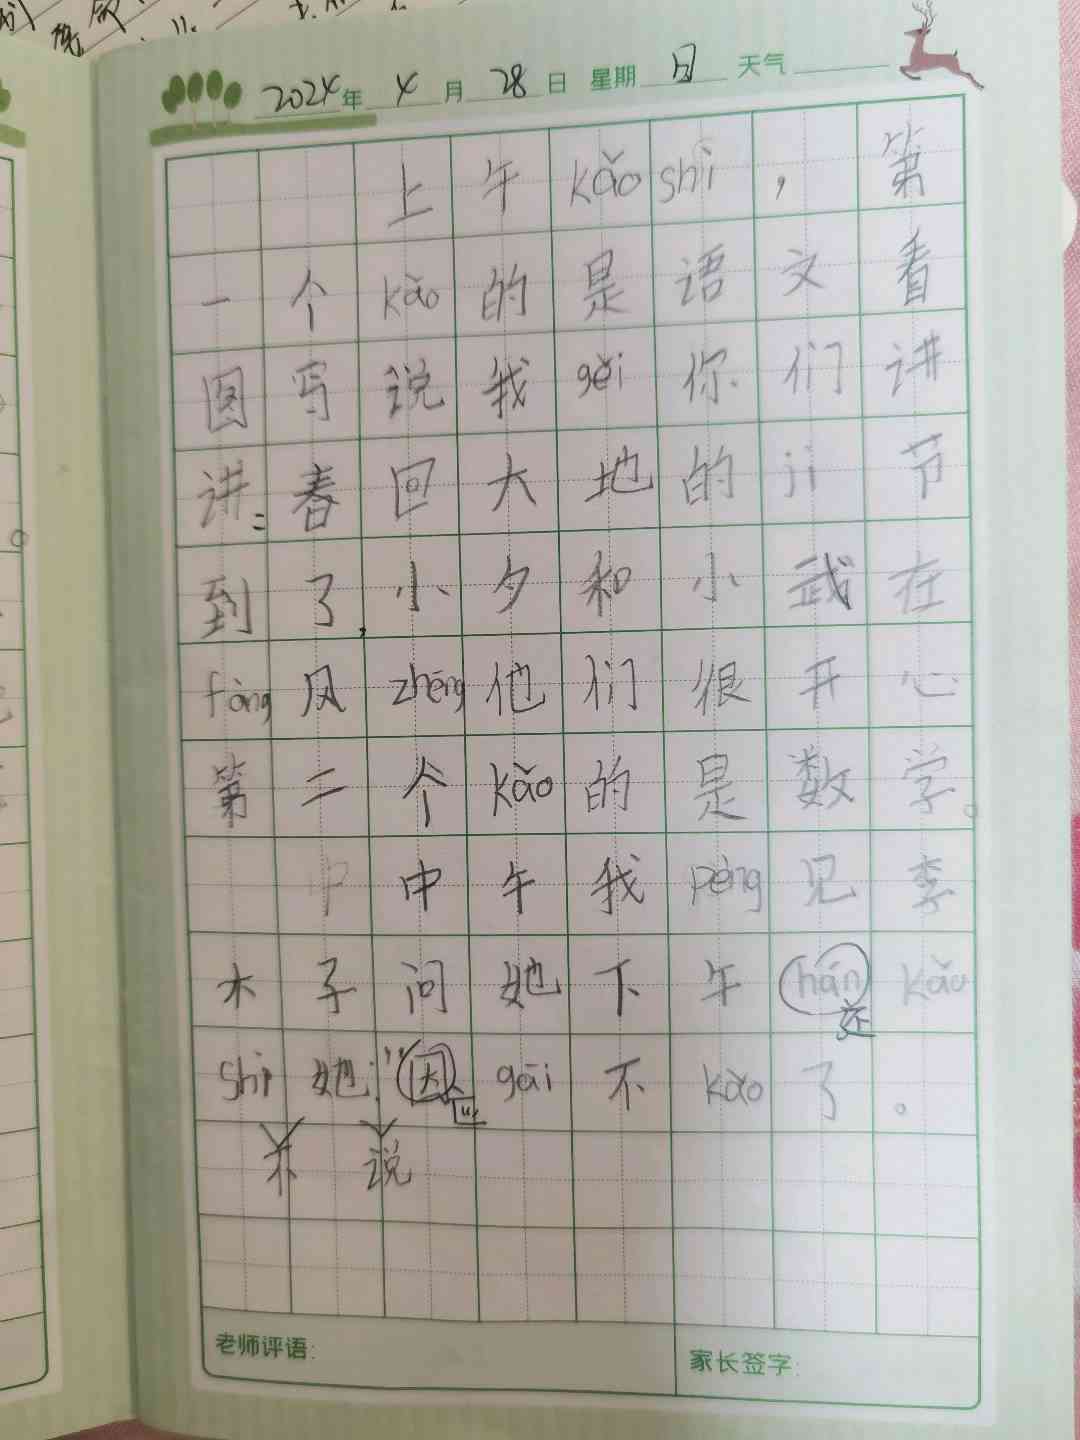 2024年 4月 28日 星期 日 天气
上午kǎo shì，第
一个kǎo的是语文看
图写说我gěi你们讲
讲：春回大地的jì节
到了，小夕和小武在
fàng风zhēng他们很开心
第二个kǎo的是数学。
中中午我pèng见李
木子问她下午hán kǎo
还
shì她：“因gāi不kǎo了。
应
不 说
老师评语：
家长签字：